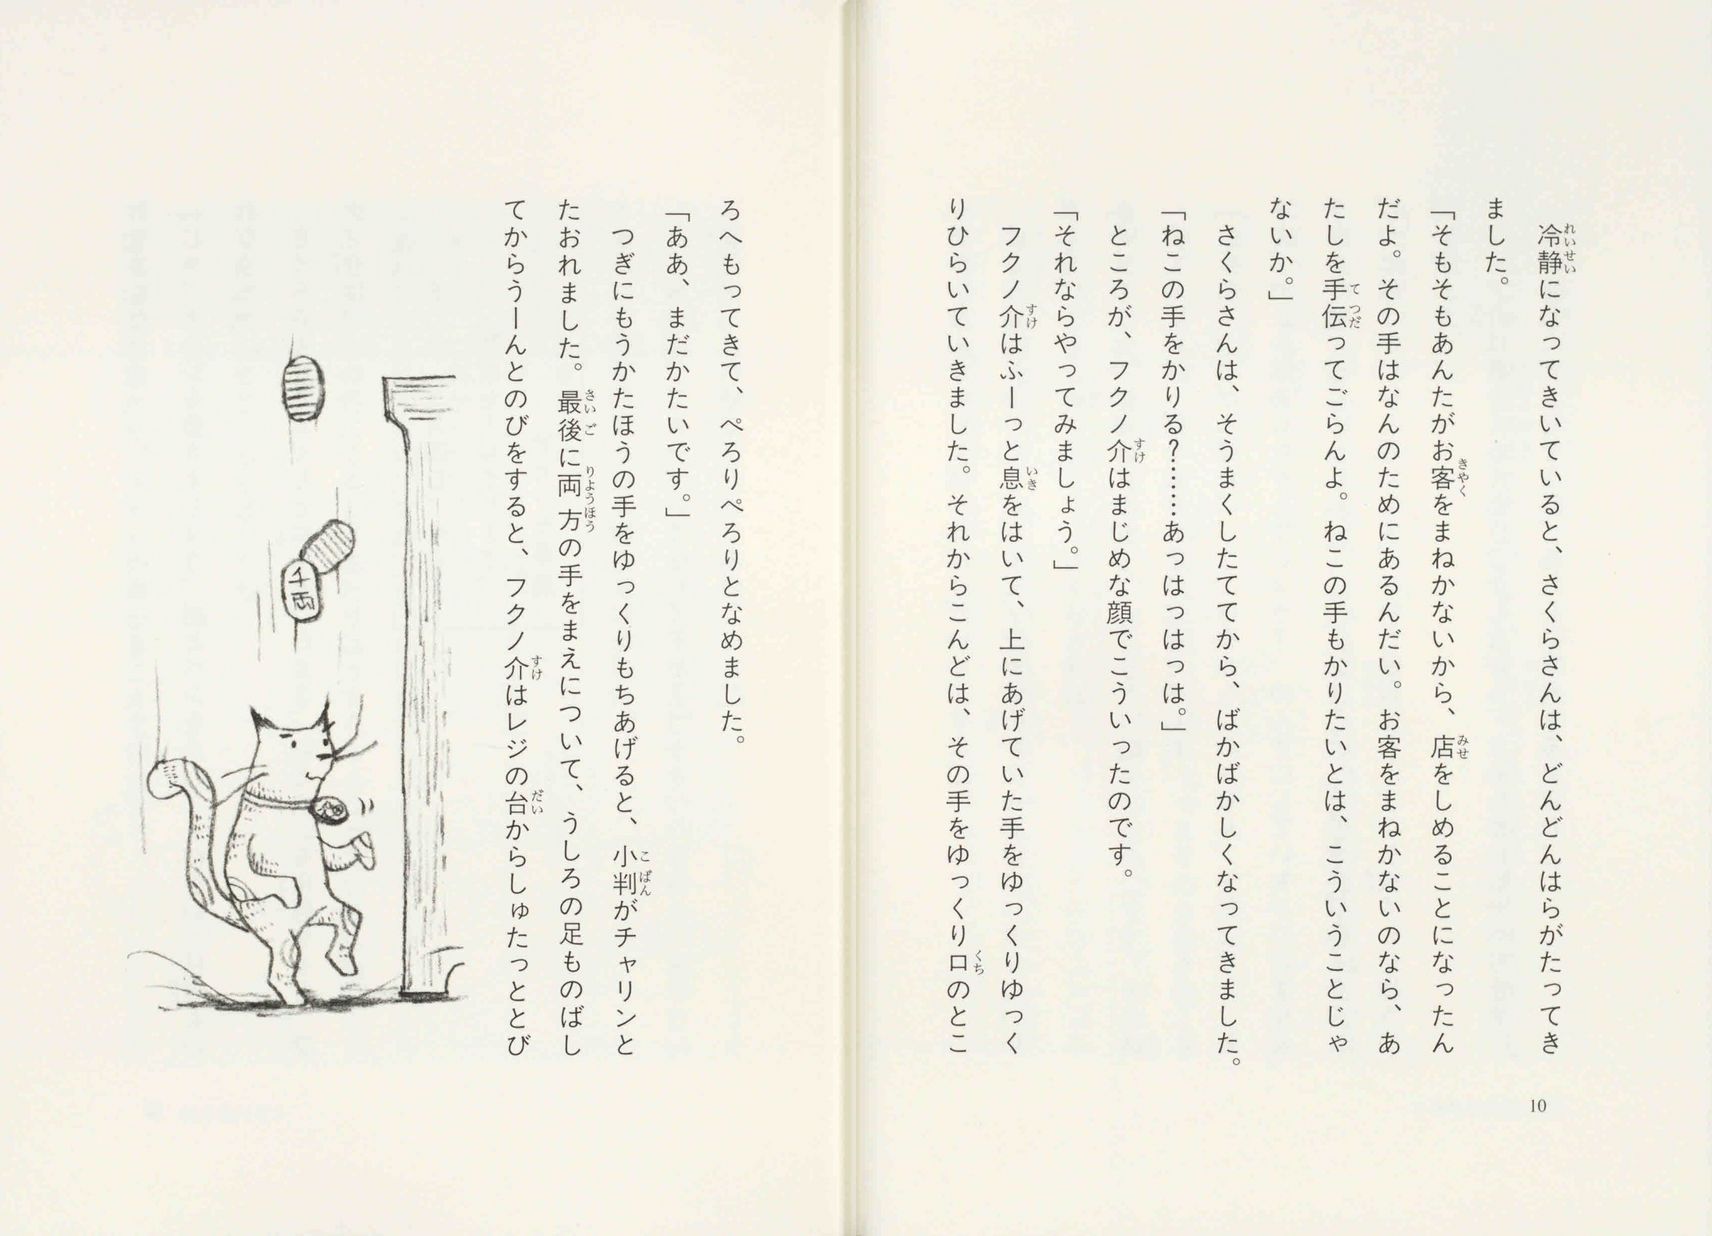 冷静になってきいていると、さくらさんは、どんどんはらがたってき
ました。
「そもそもあんたがお客をまねかないから、店をしめることになったん
だよ。その手はなんのためにあるんだい。お客をまねかないのなら、あ
たしを手伝ってごらんよ。ねこの手もかりたいとは、こういうことじゃ
ないか。」
さくらさんは、そうまくしたててから、ばかばかしくなってきました。
「ねこの手をかりる？………あっはっはっは。」
ところが、フクノ介はまじめな顔でこういったのです。
「それならやってみましょう。」
フクノ介はふーっと息をはいて、上にあげていた手をゆっくりゆっく
りひらいていきました。それからこんどは、その手をゆっくり口のとこ
10
ろへもってきて、ぺろりぺろりとなめました。
「ああ、まだかたいです。」
つぎにもうかたほうの手をゆっくりもちあげると、小判がチャリンと
たおれました。最後に両方の手をまえについて、うしろの足ものばし
てからうーんとのびをすると、フクノ介はレジの台からしゅたっととび
千両